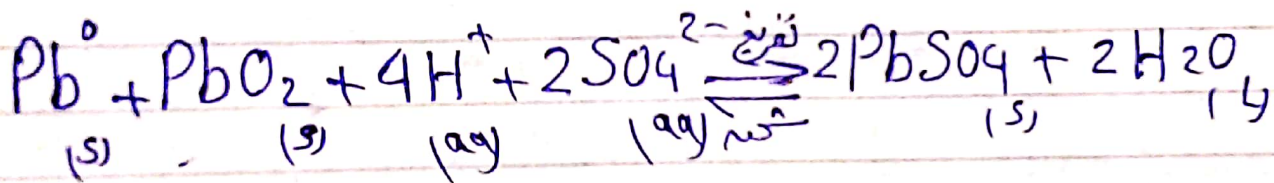 Pb⁰(s) + PbO₂(s) + 4H⁺(aq) + 2SO₄²⁻(aq) ⇌ تفريغ شحن 2PbSO₄(s) + 2H₂O(l)